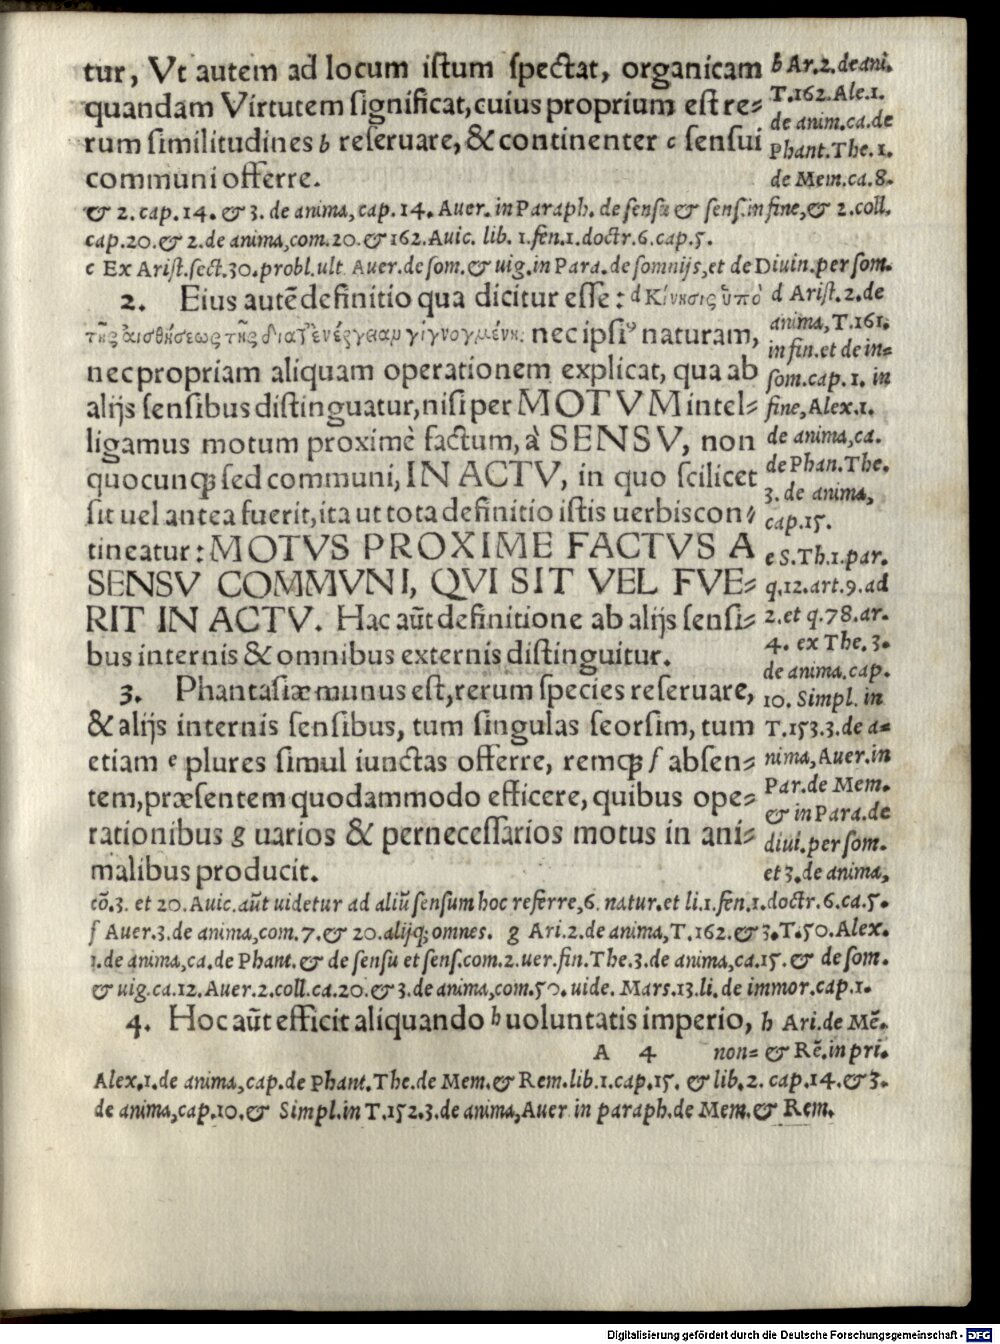 tur, Vt autem ad locum iſtum ſpectat, organicam
quandam Virtutem ſignificat, cuius proprium eſt re⸗
rum ſimilitudines b reſeruare, & continenter c ſenſui
communi offerre.
b Ar.2.de ani.
T.162.Ale.1.
de anim.ca.de
Phant.The.1.
de Mem.ca.8.
& 2. cap.14. & 3. de anima, cap.14. Auer. in Paraph. de ſenſu & ſenſ. in fine, & 2.coll.
cap.20.& 2.de anima,com.20.& 162.Auic. lib. 1.fen.1.doctr.6.cap.5.
c Ex Ariſt.ſect.30.probl.ult Auer.de ſom.& uig.in Para.de ſomnijs,et de Diuin.per ſom.
2. Eius autẽ definitio qua dicitur eſſe: d Κίνησις ὑπὸ
τῆς αἰσθήσεως τῆς διατ᾽ἐνέργειαμ γιγνομένη: nec ipſiꝰ naturam,
nec propriam aliquam operationem explicat, qua ab
alijs ſenſibus diſtinguatur, niſi per MOTVM intel⸗
ligamus motum proximè factum, à SENSV, non
quocunqꝫ ſed communi, IN ACTV, in quo ſcilicet
ſit uel antea fuerit, ita ut tota definitio iſtis uerbis con⸗
tineatur: MOTVS PROXIME FACTVS A
SENSV COMMVNI, QVI SIT VEL FVE⸗
RIT IN ACTV. Hac aũt definitione ab alijs ſenſi⸗
bus internis & omnibus externis diſtinguitur.
d Ariſt.2.de
anima,T.161.
in fin.et de in⸗
ſom.cap.1. in
fine,Alex.1.
de anima,ca.
de Phan.The.
3. de anima,
cap.15.
3. Phantaſiæ munus eſt, rerum ſpecies reſeruare,
& alijs internis ſenſibus, tum ſingulas ſeorſim, tum
etiam e plures ſimul iunctas offerre, remqꝫ f abſen⸗
tem, præſentem quodammodo efficere, quibus ope⸗
rationibus g uarios & perneceſſarios motus in ani⸗
malibus producit.
e S.Th.1.par.
q.12.art.9.ad
2.et q.78.ar.
4. ex The.3.
de anima.cap.
10. Simpl.in
T.153.3.de a⸗
nima,Auer.in
Par.de Mem.
& in Para.de
diui.per ſom.
et 3.de anima,
cõ.3. et 20.Auic.aũt uidetur ad aliũ ſenſum hoc referre,6. natur.et li.1.fen.1.doctr.6.ca.5.
f Auer.3.de anima,com.7.& 20.alijqꝫ omnes. g Ari.2.de anima,T.162.& 3.T.50.Alex.
1.de anima,ca.de Phant.& de ſenſu et ſenſ.com.2.uer.fin.The.3.de anima,ca.15.& de ſom.
& uig.ca.12.Auer.2.coll.ca.20.& 3.de anima,com.50.uide. Marſ.13.li.de immor.cap.1.
4. Hoc aũt efficit aliquando h uoluntatis imperio,
A 4 non⸗
h Ari.de Mẽ.
& Rẽ.in pri.
Alex.1.de anima,cap.de Phant.The.de Mem.& Rem.lib.1.cap.15. & lib.2. cap.14.& 3.
de anima,cap.10.& Simpl.in T.152.3.de anima,Auer in paraph.de Mem.& Rem.
Digitalisierung gefördert durch die Deutsche Forschungsgemeinschaft - DFG